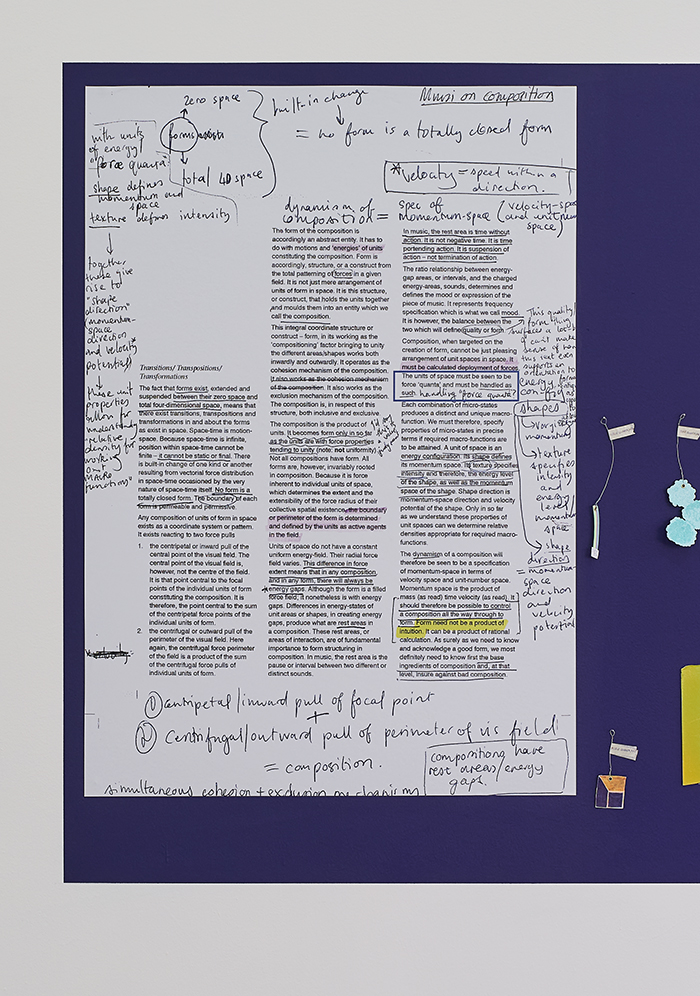 Munsi on composition
zero space
forms exist
total 4D space
built-in change
= no form is a totally closed form
with units
of energy/
"force quanta"
shape defines
momentum and
space
texture defines intensity
*velocity = speed within a
direction.
dynamism of
composition =
spec of
momentum-space
(velocity-space
together
these give
rise to
"shape
direction"
(momentum-
space
direction
and velocity
potential)
these unit
properties
allow for
relative
density for
working
out
macro
functions"
Transitions/ Transpositions/
Transformations
The fact that forms exist, extended and
suspended between their zero space and
total four-dimensional space, means that
there exist transitions, transpositions and
transformations in and about the forms
as exist in space. Space-time is motion-
space. Because space-time is infinite,
position within space-time cannot be
finite – it cannot be static or final. There
is built-in change of one kind or another
resulting from vectorial force distribution
in space-time occasioned by the very
nature of space-time itself. No form is a
totally closed form. The boundary of each
form is permeable and permissive.
Any composition of units of form in space
exists as a coordinate system or pattern.
It exists reacting to two force pulls
1. the centripetal or inward pull of the
central point of the visual field. The
central point of the visual field is,
however, not the centre of the field.
It is that point central to the focal
points of the individual units of form
constituting the composition. It is,
therefore, the point central to the sum
of the centripetal force points of the
individual units of form.
2. the centrifugal or outward pull of the
perimeter of the visual field. Here
again, the centrifugal force perimeter
of the field is a product of the sum
of the centrifugal force pulls of
individual units of form.
The form of the composition is
accordingly an abstract entity. It has to
do with motions and 'energies' of units
constituting the composition. Form is
accordingly, structure, or a construct from
the total patterning of forces in a given
field. It is not just mere arrangement of
units of form in space. It is this structure,
or construct, that holds the units together
and moulds them into an entity which we
call the composition.
This integral coordinate structure or
construct – form, in its working as the
'compositioning' factor bringing to unity
the different areas/shapes works both
inwardly and outwardly. It operates as the
cohesion mechanism of the composition.
It also works as the cohesion mechanism
of the composition. It also works as the
exclusion mechanism of the composition.
The composition is, in respect of this
structure, both inclusive and exclusive.
The composition is the product of
units. It becomes form only in so far
as the units are with force properties
tending to unity (note: not uniformity).
Not all compositions have form. All
forms are, however, invariably rooted
in composition. Because it is force
inherent to individual units of space,
which determines the extent and the
extensibility of the force radius of their
collective spatial existence, the boundary
or perimeter of the form is determined
and defined by the units as active agents
in the field.
Units of space do not have a constant
uniform energy-field. Their radial force
field varies. This difference in force
extent means that in any composition,
and in any form, there will always be
*energy gaps. Although the form is a filled
force field, it nonetheless is with energy
gaps. Differences in energy-states of
unit areas or shapes, in creating energy
gaps, produce what are rest areas in
a composition. These rest areas, or
areas of interaction, are of fundamental
importance to form structuring in
composition. In music, the rest area is the
pause or interval between two different or
distinct sounds.
In music, the rest area is time without
action. It is not negative time. It is time
portending action. It is suspension of
action – not termination of action.
The ratio relationship between energy-
gap areas, or intervals, and the charged
energy-areas, sounds, determines and
defines the mood or expression of the
piece of music. It represents frequency
specification which is what we call mood.
It is however, the balance between the
two which will define quality or form.
Composition, when targeted on the
creation of form, cannot be just pleasing
arrangement of unit spaces in space. It
must be calculated deployment of forces.
The units of space must be seen to be
force 'quanta' and must be handled as
such handling 'force quanta'?
Each combination of micro-states
produces a distinct and unique macro-
function. We must therefore, specify
properties of micro-states in precise
terms if required macro-functions are
to be attained. A unit of space is an
energy configuration. Its shape defines
its momentum space. Its texture specifies
intensity and therefore, the energy level
of the shape, as well as the momentum
space of the shape. Shape direction is
momentum-space direction and velocity
potential of the shape. Only in so far
as we understand these properties of
unit spaces can we determine relative
densities appropriate for required macro-
functions.
The dynamism of a composition will
therefore be seen to be a specification
of momentum-space in terms of
velocity space and unit-number space.
Momentum space is the product of
mass (as read) time velocity (as read). It
should therefore be possible to control
a composition all the way through to
form. Form need not be a product of
intuition. It can be a product of rational
calculation. As surely as we need to know
and acknowledge a good form, we most
definitely need to know first the base
ingredients of composition and, at that
level, insure against bad composition.
shapes
momentum
texture
specifies
intensity
and
energy
level,
momentum
space
shape
direction
= momentum-
space
direction
and
velocity
potential
① centripetal/inward pull of focal point
+
② Centrifugal/outward pull of perimeter of vis field
= composition.
compositions have
rest areas/energy
gaps.
simultaneous cohesion + exclusion mechanisms